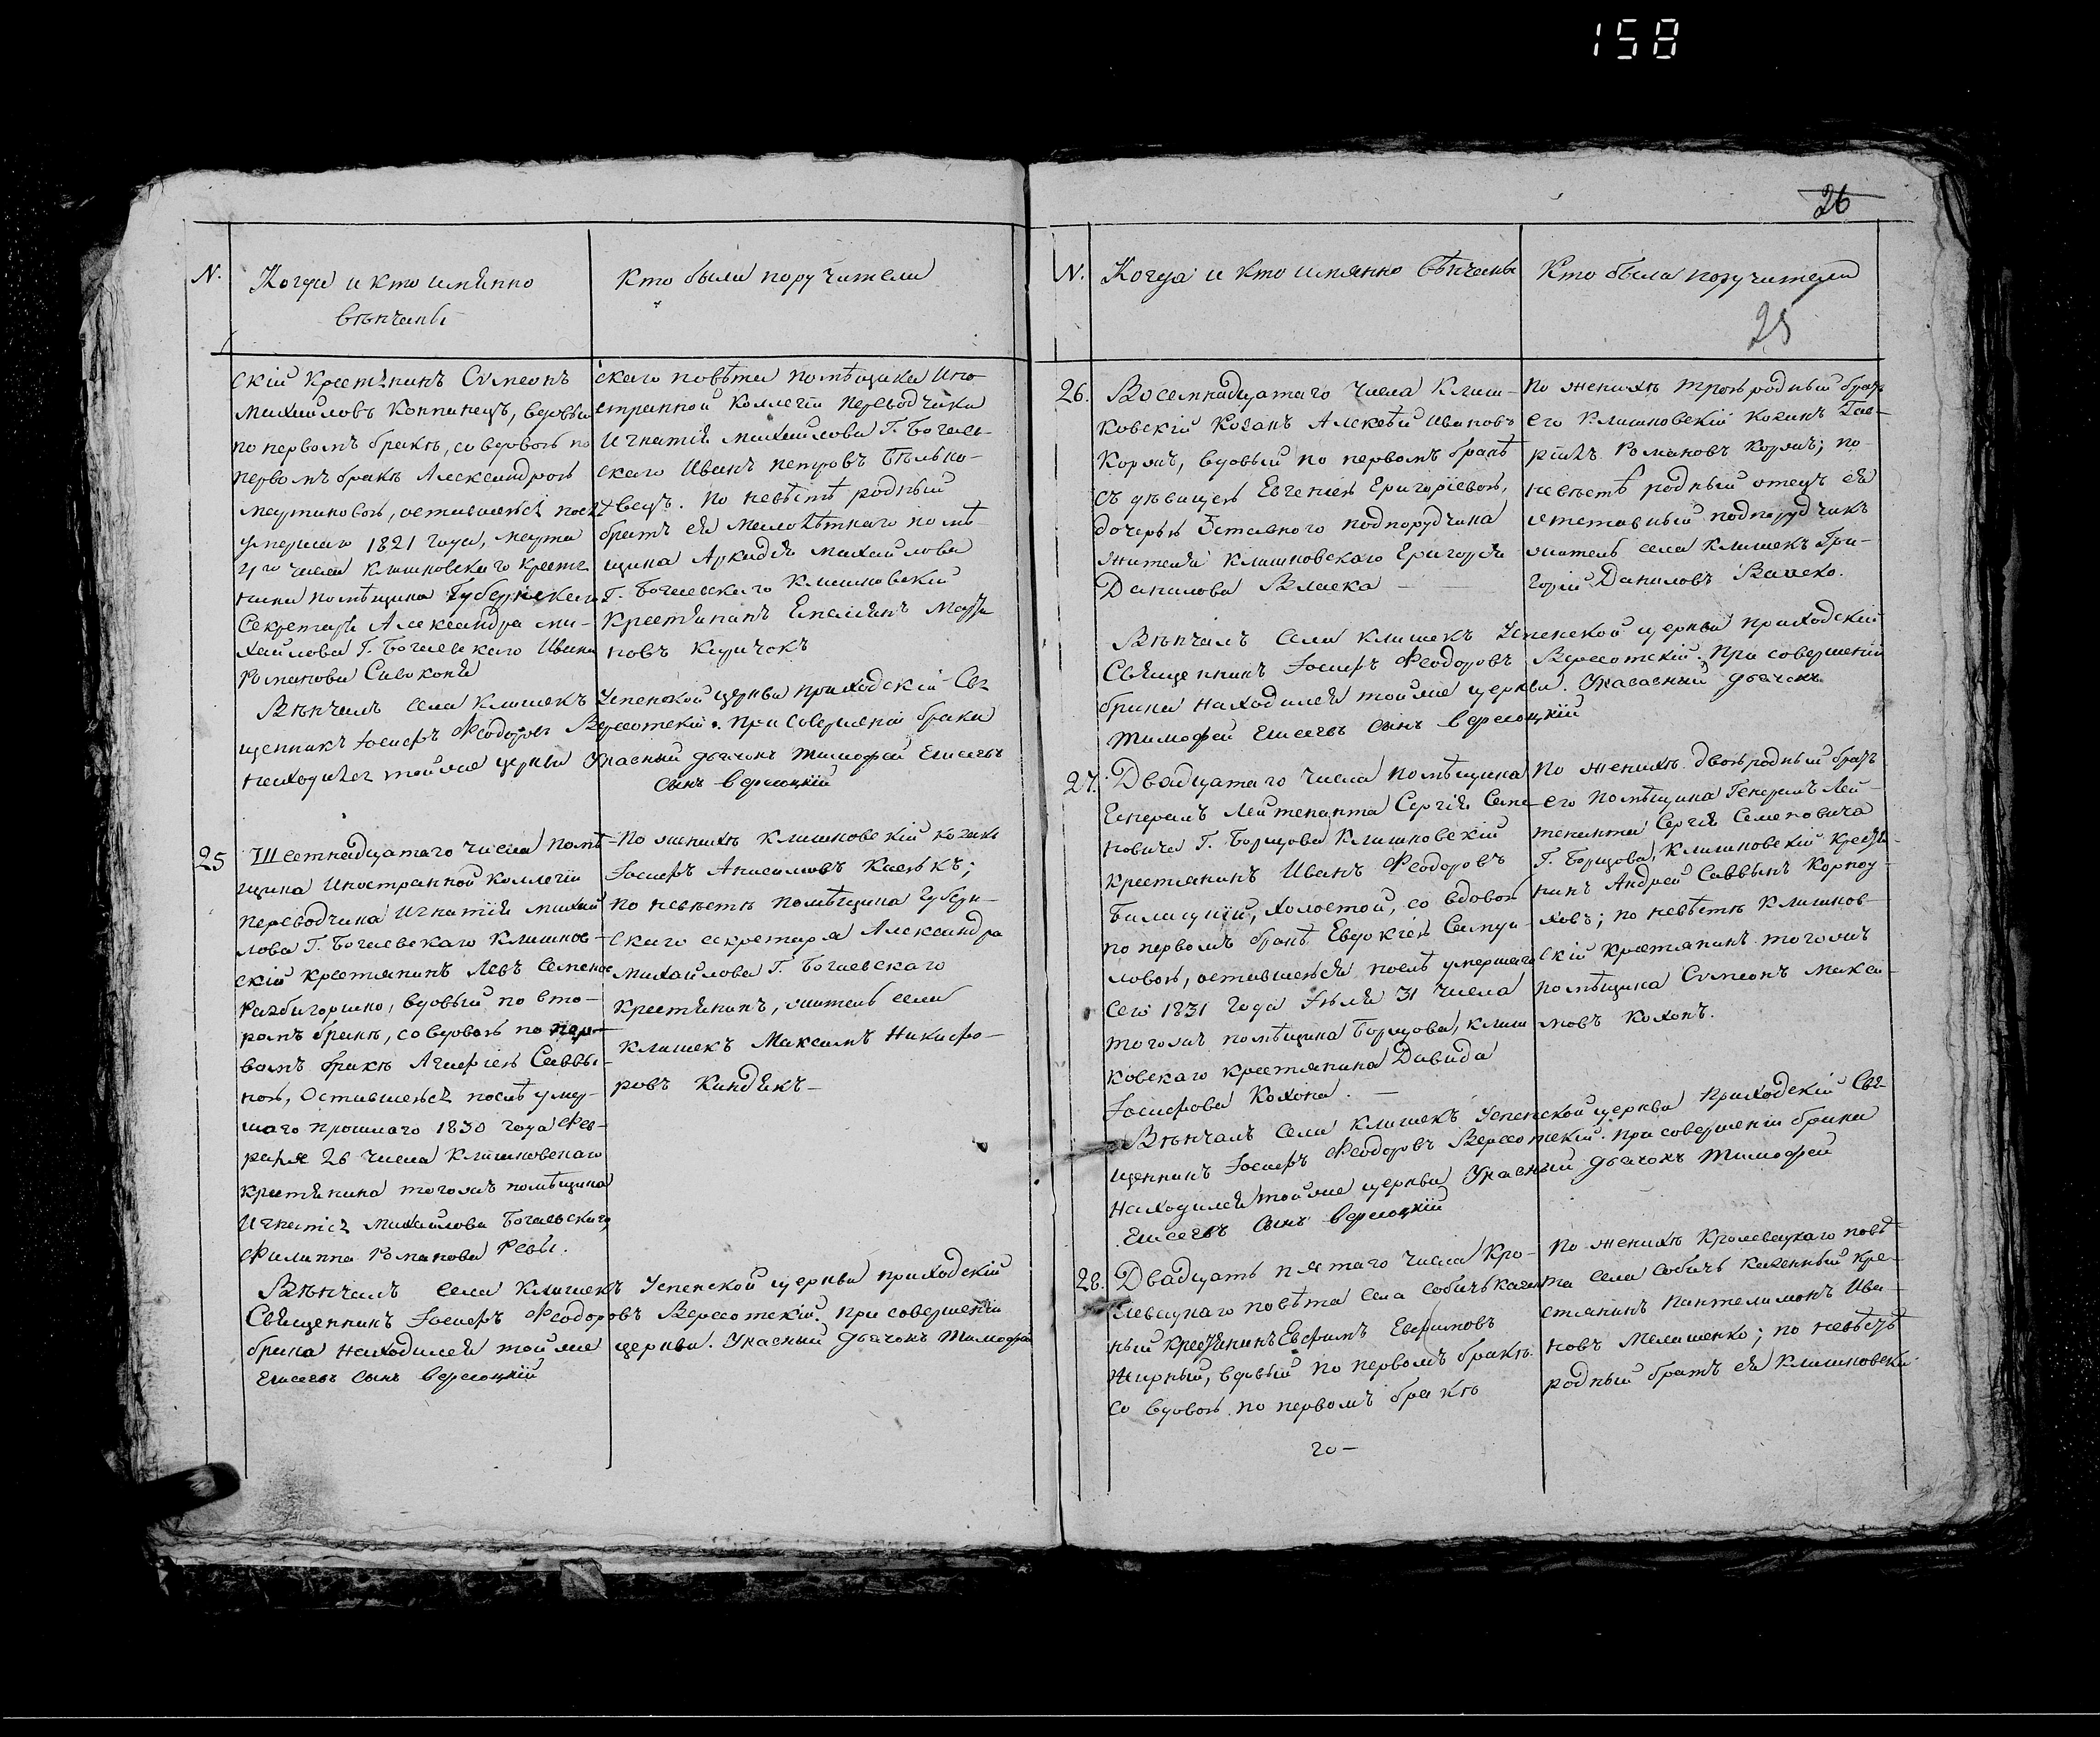 158
26
N. Когда и кто имянно
вѣнчаны
Кто были поручители
скій Крестянинъ Сѵмеонъ
Михайловъ Коппинецъ, вдовый
по первомъ бракѣ, со вдовою по
первомъ бракѣ Александрою
Мартиновою, оставшеюся послѣ
умершаго 1821 года, марта
4го числа Клишковскаго крестя
нина помѣщика Губернскаго
Секретаря Александра Ми-
хайлова Г. Богаевскаго Ивана
Романова Сивоконя
скаго повѣта помѣщика Ино
странной Коллегіи переводчика
Игнатія Михайлова Г. Богаев-
скаго Иванъ Петровъ
вецъ. По невѣстѣ родный
братъ ея малолѣтнаго помѣ-
щика Аркадія Михайлова
Г. Богаевскаго Клишковскій
Крестянинъ Емелянъ Марти
новъ Кулічокъ
Вѣнчалъ села Клишекъ Успенской церкви приходскій Свя
щенникъ Іосифъ Феодоровъ Верестскій. При совершеніи брака
находился тойже церкви Указный дьячокъ Тимофей Елисеевъ
сынъ Верещкій
25 Шестнадцатаго числа помѣ-
щика Иностранной Коллегіи
переводчика Игнатія Михай
лова Г. Богаевскаго Клишков-
скій крестянинъ Левъ Семенов
Разбигоршко, вдовый по вто-
ромъ бракѣ, со вдовою по пер-
вомъ бракѣ Агафіею Саввы-
ною, оставшеюся послѣ умер-
шаго прошлаго 1830 года Фев-
раля 26 числа Клишковскаго
крестянина тогожъ помѣщика
Игнатія Михайлова Богаевскаго,
Филиппа Романова Ревы.
По женихѣ Клишковскій козакъ
Іосифъ Анисимовъ
по невѣстѣ помѣщика Губерн-
скаго секретаря Александра
Михайлова Г. Богаевскаго
крестянинъ, житель села
Клишекъ Максимъ Никифо-
ровъ Киндякъ
Вѣнчалъ села Клишекъ Успенской церкви приходскій
Священникъ Іосифъ Феодоровъ Верестскій. При совершеніи
брака находился тойже церкви. Указный дьячокъ Тимофей
Елисеевъ сынъ Верещкій
N. Когда и кто имянно вѣнчаны
Кто были поручители
25
26. Восемнадцатаго числа Клиш-
ковскій Козакъ Алексѣй Ивановъ
Коржъ, вдовый по первомъ бракѣ
съ дѣвицею Евгеніею Григоріевою,
дочерью Отставного подпорудчика
жителя Клишковскаго Григорія
Данилова Власка
По женихѣ троюродный братъ
его Клишковскій Козакъ Гав-
ріилъ Романовъ Коржъ; по
невѣстѣ родный отецъ ея
отставный подпорудчикъ
житель села Клишекъ Гри-
горій Даниловъ Власко.
Вѣнчалъ села Клишекъ Успенской церкви приходскій
Священникъ Іосифъ Феодоровъ Верестскій. При совершеніи
брака находился тойже церкви. Указный дьячокъ
Тимофей Елисеевъ сынъ Верещкій
27. Двадцатаго числа помѣщика
Генералъ Лейтенанта Сергія Семе
новича Г. Борщова Клишковскій
крестянинъ Иванъ Феодоровъ
Билицкій, холостой, со вдовою
по первомъ бракѣ Евдокіею Самуи
ловою, оставшеюся послѣ умершаго
сего 1831 года Іюля 31 числа
тогожъ помѣщика Борщова, Клиш
ковскаго крестянина Давида
Іосифова Кохона.
По женихѣ двоюродный братъ
его помѣщика Генералъ Лей-
тенанта Сергія Семеновича
Г. Борщова, Клишковскій крестя-
нинъ Андрей Саввынъ Корноу-
ховъ; по невѣстѣ Клишков-
скій крестянинъ тогожъ
помѣщика Сѵмеонъ Макси-
мовъ Кохонъ.
Вѣнчалъ села Клишекъ Успенской церкви приходскій Свя-
щенникъ Іосифъ Феодоровъ Верестскій. При совершеніи брака
находился тойже церкви Указный дьячокъ Тимофей
Елисеевъ сынъ Верещкій
28. Двадцать пятаго числа Кро-
левецкаго повѣта села Собичъ казен
ный крестянинъ Евфимъ Евфимовъ
Жирный, вдовый по первомъ бракѣ
со вдовою по первомъ бракѣ
По женихѣ Кролевецкаго повѣ-
та села Собичъ казенный кре-
стянинъ Пантелимонъ Ива-
новъ Мелашенко; по невѣстѣ
родный братъ ея Клишковскій
го-